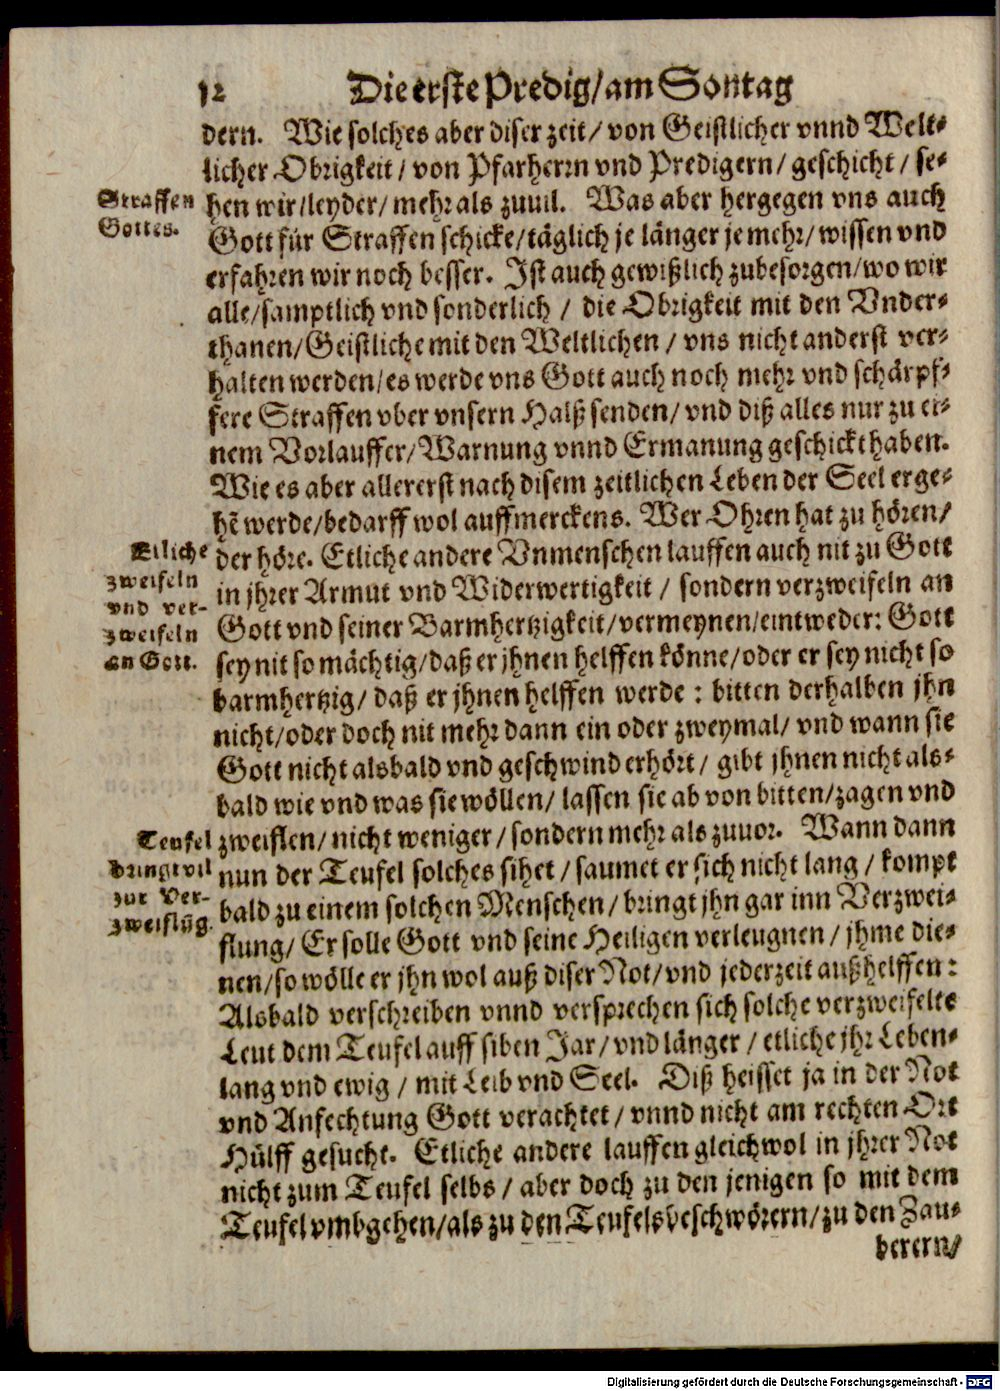 12 Die erste Predig/ am Sontag
dern. Wie solches aber diser zeit/ von Geistlicher vnnd Welt-
licher Obrigkeit/ von Pfarherrn vnd Predigern/ geschicht/ se-
hen wir/ leyder/ mehr als zuuil. Was aber hergegen vns auch
Gott für Straffen schicke/ täglich je länger je mehr/ wissen vnd
erfahren wir noch besser. Ist auch gewißlich zubesorgen/ wo wir
alle/ samptlich vnd sonderlich/ die Obrigkeit mit den Vnder-
thanen/ Geistliche mit den Weltlichen/ vns nicht anderst ver-
halten werden/ es werde vns Gott auch noch mehr vnd schärpf-
fere Straffen vber vnsern Halß senden/ vnd diß alles nur zu ei-
nem Vorlauffer/ Warnung vnnd Ermanung geschickt haben.
Wie es aber allererst nach disem zeitlichen Leben der Seel erge-
hẽ werde/ bedarff wol auffmerckens. Wer Ohren hat zu hören/
der höre. Etliche andere Vnmenschen lauffen auch nit zu Gott
in jhrer Armut vnd Widerwertigkeit/ sondern verzweifeln an
Gott vnd seiner Barmhertzigkeit/ vermeynen/ eintweder: Gott
sey nit so mächtig/ daß er jhnen helffen könne/ oder er sey nicht so
barmhertzig/ daß er jhnen helffen werde: bitten derhalben jhn
nicht/ oder doch nit mehr dann ein oder zweymal/ vnd wann sie
Gott nicht alsbald vnd geschwind erhört/ gibt jhnen nicht als-
bald wie vnd was sie wöllen/ lassen sie ab von bitten/ zagen vnd
zweiflen/ nicht weniger/ sondern mehr als zuuor. Wann dann
nun der Teufel solches sihet/ saumet er sich nicht lang/ kompt
bald zu einem solchen Menschen/ bringt jhn gar inn Verzwei-
flung/ Er solle Gott vnd seine Heiligen verleugnen/ jhme die-
nen/ so wölle er jhn wol auß diser Not/ vnd jederzeit außhelffen:
Alsbald verschreiben vnnd versprechen sich solche verzweifelte
Leut dem Teufel auff siben Jar/ vnd länger/ etliche jhr Leben-
lang vnd ewig/ mit Leib vnd Seel. Diß heisset ja in der Not
vnd Anfechtung Gott verachtet/ vnnd nicht am rechten Ort
Hülff gesucht. Etliche andere lauffen gleichwol in jhrer Not
nicht zum Teufel selbs/ aber doch zu den jenigen so mit dem
Teufel vmbgehen/ als zu den Teufelsbeschwörern/ zu den Zau-
berern/
Straffen
Gottes.
Etliche
zweifeln
vnd ver-
zweifeln
an Gott.
Teufel
bringt vil
zur Ver-
zweiflũg.
Digitalisierung gefördert durch die Deutsche Forschungsgemeinschaft - DFG